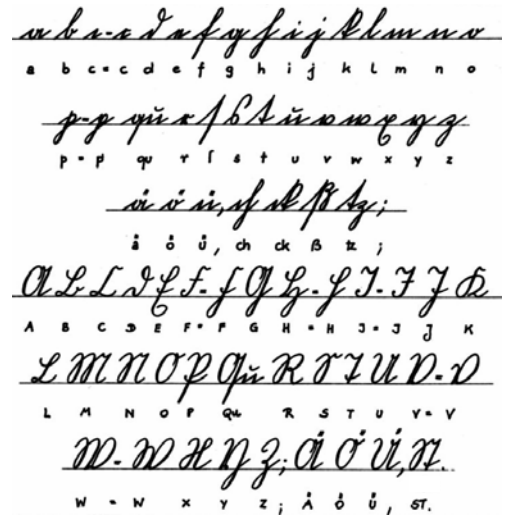 a b c-c d e f g h i j k l m n o
a b c = c d e f g h i j k l m n o
p-p qu r ſ s t u v w x y z
p = p qu r ſ s t u v w x y z
ä ö ü, ch ck ß tz;
ä ö ü, ch ck ß tz ;
A B C D E F-F G H-H I-I J K
A B C D E F = F G H = H J = J J K
L M N O P Qu R S T U V-V
L M N O P Qu R S T U V = V
W-W X Y Z; Ä Ö Ü, ST.
W = W X Y Z ; Ä Ö Ü, ST.